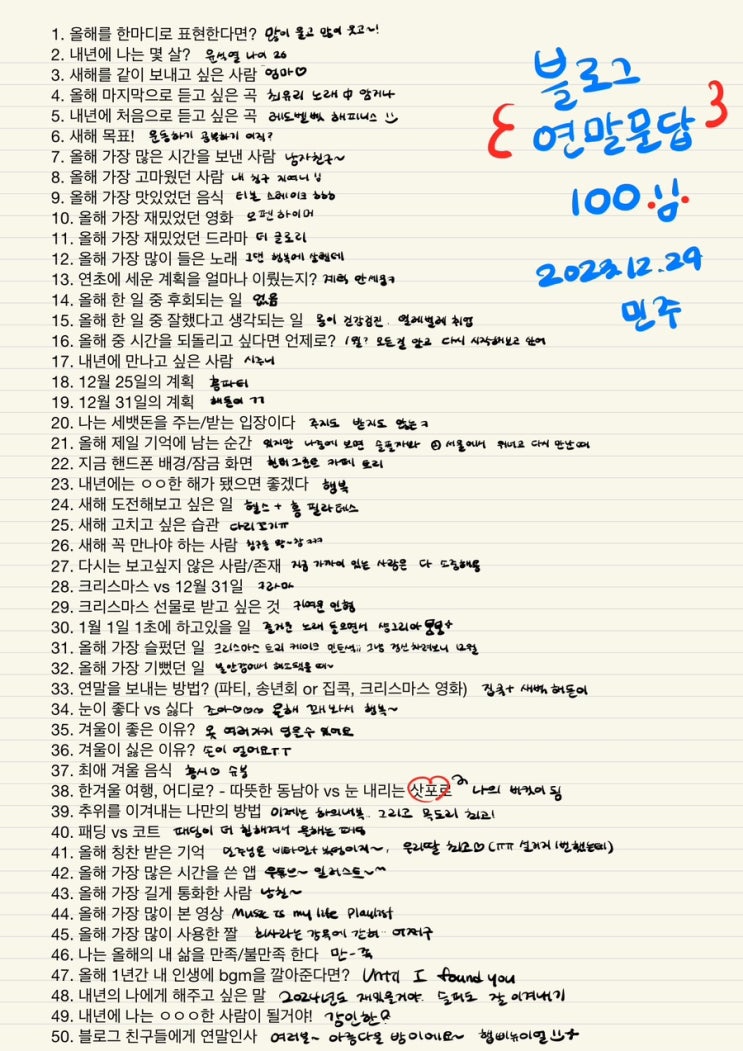 1. 올해를 한마디로 표현한다면? 많이 울고 많이 웃고~!
2. 내년에 나는 몇 살? 윤석열 나이 26
3. 새해를 같이 보내고 싶은 사람 엄마♡
4. 올해 마지막으로 듣고 싶은 곡 최유리 노래 中 암거나
5. 내년에 처음으로 듣고 싶은 곡 레드벨벳 해피니스
6. 새해 목표! 운동하기 공부하기 이직?
7. 올해 가장 많은 시간을 보낸 사람 남자친구~
8. 올해 가장 고마웠던 사람 내 친구
9. 올해 가장 맛있었던 음식 티본 스테이크 ㅎㅎㅎ
10. 올해 가장 재밌었던 영화 오펜하이머
11. 올해 가장 재밌었던 드라마 더 글로리
12. 올해 가장 많이 들은 노래 그댄 행복에 살텐데
13. 연초에 세운 계획을 얼마나 이뤘는지? 계획 안세움ㅋ
14. 올해 한 일 중 후회되는 일 없음
15. 올해 한 일 중 잘했다고 생각되는 일 몽이 건강검진. 얼레벌레 취업
16. 올해 중 시간을 되돌리고 싶다면 언제로? 1월? 모든걸 알고 다시 시작해보고 싶어
17. 내년에 만나고 싶은 사람
18. 12월 25일의 계획 홈파티
19. 12월 31일의 계획 해돋이 ㄱㄱ
20. 나는 세뱃돈을 주는/받는 입장이다 주지도 받지도 않는ㅋ
21. 올해 제일 기억에 남는 순간 있지만 나중에 보면 슬플까봐 서울에서 다시 만난 때
22. 지금 핸드폰 배경/잠금 화면 카페 토리
23. 내년에는 ㅇㅇ한 해가 됐으면 좋겠다 행복
24. 새해 도전해보고 싶은 일 헬스 + 홈 필라테스
25. 새해 고치고 싶은 습관 다리꼬기ㅠ
26. 새해 꼭 만나야 하는 사람 친구들
27. 다시는 보고싶지 않은 사람/존재 지금 가까이 있는 사람은 다 소중해용
28. 크리스마스 vs 12월 31일 크리스마
29. 크리스마스 선물로 받고 싶은 것 귀여운 인형
30. 1월 1일 1초에 하고있을 일 즐거운 노래 들으면서 샹그리아
31. 올해 가장 슬펐던 일 크리스마스 트리 케이크 그냥 정신차려보니 12월
32. 올해 가장 기뻤던 일
33. 연말을 보내는 방법? (파티, 송년회 or 집콕, 크리스마스 영화) 집콕+ 새벽 해돋이
34. 눈이 좋다 vs 싫다 조아♡♡♡ 올해 꽤 봐서 행복~
35. 겨울이 좋은 이유? 옷 여러가지 입을수 있어요
36. 겨울이 싫은 이유? 손이 얼어요ㅜㅜ
37. 최애 겨울 음식 홍시♡ 슈붕
38. 한겨울 여행, 어디로? - 따뜻한 동남아 vs 눈 내리는 삿포로 나의 버킷이 됨
39. 추위를 이겨내는 나만의 방법 이제는 하의내복. 그리고 목도리 최고!
40. 패딩 vs 코트 패딩이 더 힙해져서 올해는 패딩
41. 올해 칭찬 받은 기억 민주님은 비타민+ 보영이지~, 우리딸 최고♡ (ㅠㅠ 설거지 1번했는데)
42. 올해 가장 많은 시간을 쓴 앱 유튜브~ 일러스트~^^
43. 올해 가장 길게 통화한 사람 남친~
44. 올해 가장 많이 본 영상 Music is my life Playlist
45. 올해 가장 많이 사용한 짤 회사라는 감옥에 갇혀.. 어쩌구
46. 나는 올해의 내 삶을 만족/불만족 한다 만-족
47. 올해 1년간 내 인생에 bgm을 깔아준다면? Until I found you
48. 내년의 나에게 해주고 싶은 말 2024년도 재밌을거야. 슬퍼도 잘 이겨내기
49. 내년에 나는 ㅇㅇㅇ한 사람이 될거야! 강인한
50. 블로그 친구들에게 연말인사 여러분~ 아름다운 밤이에요~ 햅삐뉴이얼
블로그
연말문답
100
2023.12.29
민주